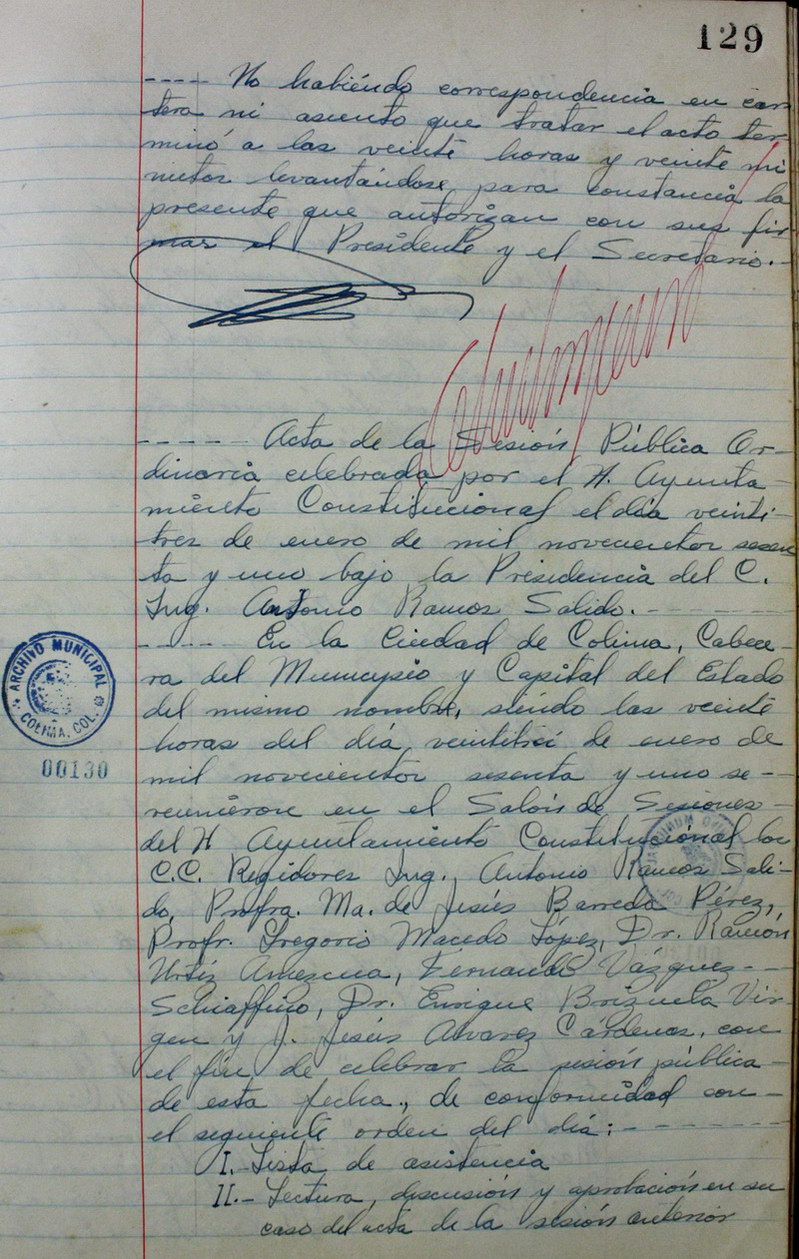 129
---- No habiendo correspondencia en car
tera ni asunto que tratar el acto ter
minó a las veinte horas y veinte mi
nutos levantándose para constancia la
presente que autorizan con sus fir
mas el Presidente y el Secretario.
----- Acta de la Sesión Pública Or-
dinaria celebrada por el H. Ayunta-
miento Constitucional el día veinti-
tres de enero de mil novecientos sesen
ta y uno bajo la Presidencia del C.
Ing. Antonio Ramos Salido.
----- En la Ciudad de Colima, Cabece-
ra del Municipio y Capital del Estado
del mismo nombre, siendo las veinte
horas del día veintitrés de enero de
mil novecientos sesenta y uno se-
reunieron en el Salón de Sesiones-
del H Ayuntamiento Constitucional los
C.C. Regidores Ing. Antonio Ramos Sali-
do, Profra. Ma. de Jesús Barreda Pérez,
Profr. Gregorio Macedo López, Dr. Ramón
Urtíz Amezcua, Fernando Vázquez--
Schiaffino, Dr. Enrique Brizuela Vir-
gen y J. Jesús Alvarez Cárdenas, con
el fin de celebrar la sesión pública-
de esta fecha., de conformidad con-
el seguiente orden del día:------
I.- Lista de asistencia
II.- Lectura, discusión y aprobación en su
caso del acta de la sesión anterior
ARCHIVO MUNICIPAL
COLIMA, COL.
00130